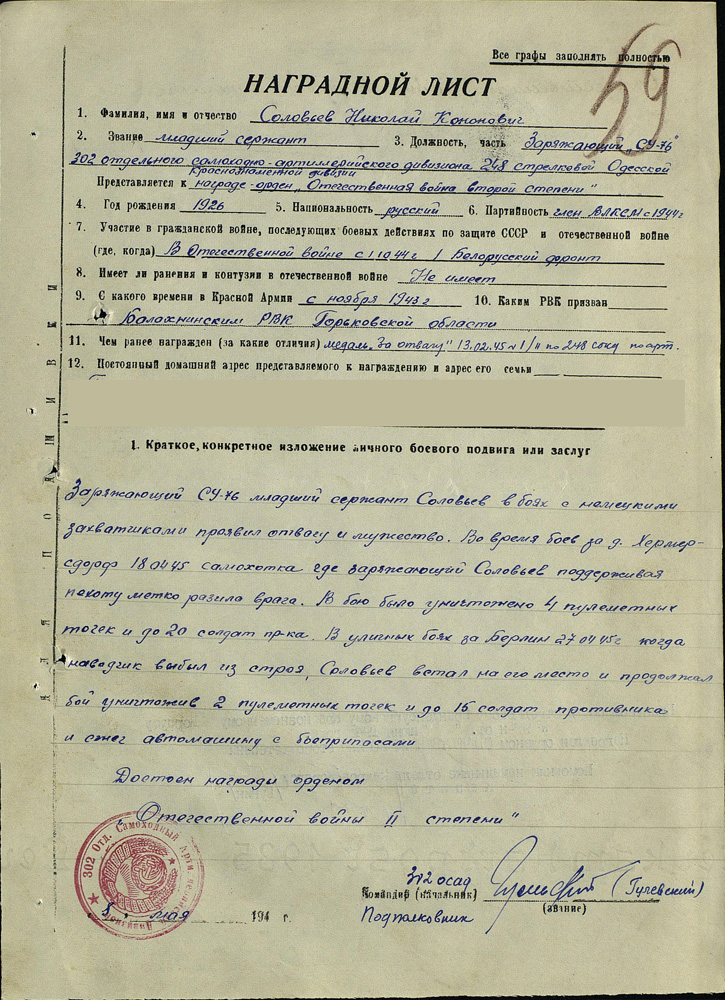 59
Все графы заполнять полностью
НАГРАДНОЙ ЛИСТ
1. Фамилия, имя и отчество Соловьев Николай Кононович
2. Звание младший сержант 3. Должность, часть Заряжающий „СУ-76"
302 отдельного самоходно-артиллерийского дивизиона 248 стрелковой Одесской
Краснознаменной дивизии
Представляется к награде-орден „Отечественная война второй степени"
4. Год рождения 1926 5. Национальность русский 6. Партийность член ВЛКСМ с 1944г
7. Участие в гражданской войне, последующих боевых действиях по защите СССР и отечественной войне
(где, когда) В Отечественной войне с 1.10.44г 1 Белорусский фронт
8. Имеет ли ранения и контузии в отечественной войне Не имеет
9. С какого времени в Красной Армии с ноября 1943г 10. Каким РВК призван
Балахнинским РВК Горьковской области
11. Чем ранее награжден (за какие отличия) медаль „За отвагу" 13.02.45 по 248
12. Постоянный домашний адрес представляемого к награждению и адрес его семьи
1. Краткое, конкретное изложение личного боевого подвига или заслуг
Заряжающий СУ-76 младший сержант Соловьев в боях с немецкими
захватчиками проявил отвагу и мужество. Во время боев за д. Хермер-
сдорф 18 04 45 самохотка где заряжающий Соловьев поддерживая
пехоту метко разила врага. В бою было уничтожено 4 пулеметных
точек и до 20 солдат пр-ка. В уличных боях за Берлин 27 04 45г когда
наводчик выбыл из строя, Соловьев встал на его место и продолжал
бой уничтожив 2 пулеметных точек и до 15 солдат противника
и сжег автомашину с боеприпасами
Достоен награды орденом
„Отечественной войны II степени"
302 Отд. Самоходный Арти
302 осад
Командир (начальник) (Гулевский)
(звание)
мая 194 г. Подполковник
ДЛЯ ПОДШИВКИ